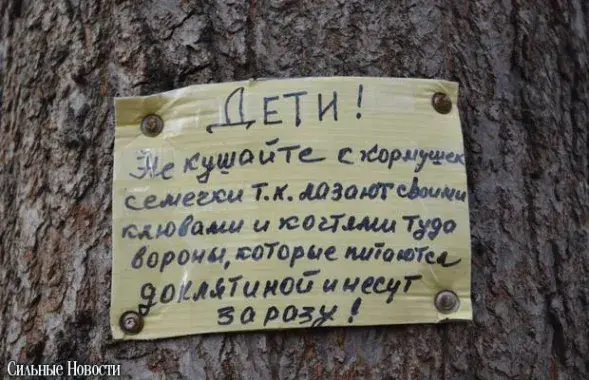 ДЕТИ!
Не кушайте с кормушек
семечки т.к. лазают своими
клювами и когтями туда
вороны, которые питаются
дохлятиной и несут
заразу!
Сильные Новости